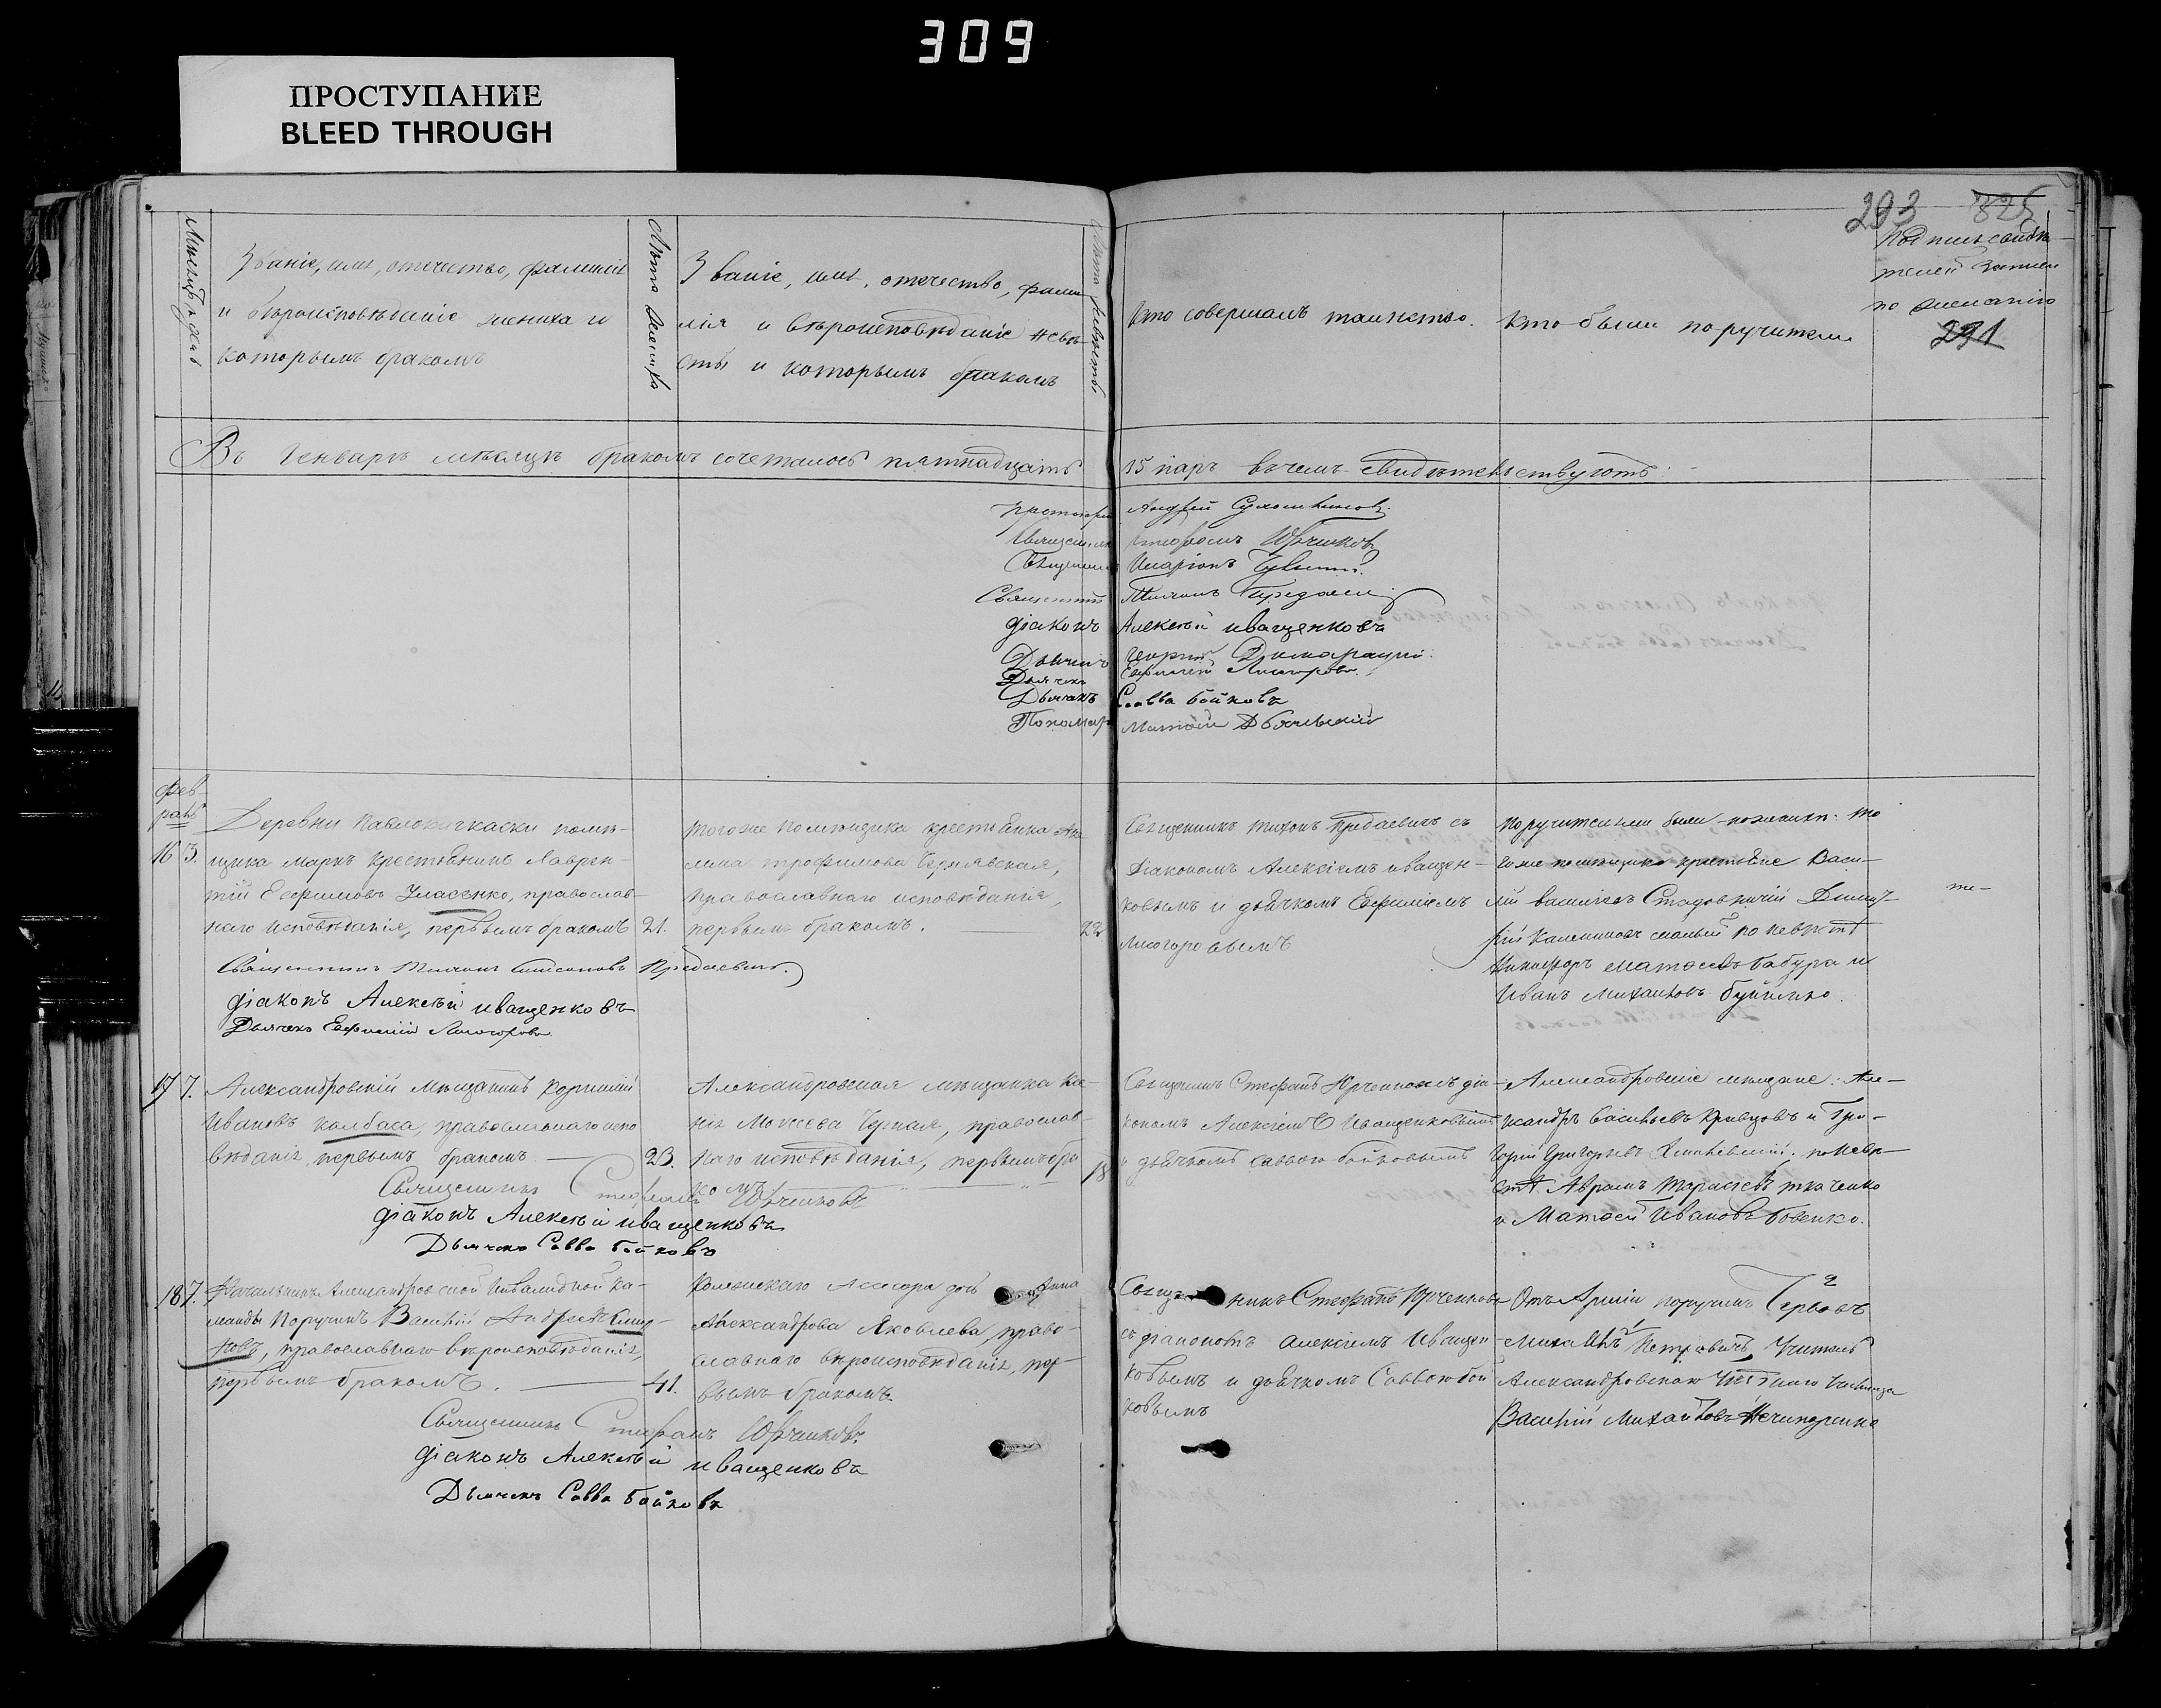 309
ПРОСТУПАНИЕ
BLEED THROUGH
293 325
Мѣсяцъ и дней
Званіе, имя, отечество, фамилія
и вѣроисповѣданіе жениха и
которымъ бракомъ
Лѣта жениха
Званіе, имя, отечество, фами-
лія и вѣроисповѣданіе невѣ-
сты и которымъ бракомъ
Лѣта невѣсты
Кто совершалъ таинство.
Кто были поручители
Подпись свидѣ-
телей записи
по желанію
291
Въ Генварѣ мѣсяцѣ бракомъ сочеталось пятнадцать 15 паръ въ чемъ свидѣтельствуютъ:
Протоіерей Андрей
Священникъ Стефанъ Юрченковъ
Священникъ Иларіонъ
Священникъ Тихонъ
діаконъ Алексѣй иващенковъ
Дьячекъ Георгій
Дьячекъ Евфимій Лисогоровъ
Дьячекъ Савва бойковъ
Пономарь Матвей
Фев-
раль
16 3.
Деревни Павлокичкаски помѣ-
щика Маркъ крестьянинъ Лаврен-
тій Евфимовъ Уласенко, православ-
наго исповѣданія, первымъ бракомъ 21.
Священникъ Тихонъ Симеоновъ Предаевичъ.
діаконъ Алексѣй иващенковъ
Дьячекъ Евфимій Лисогоровъ
тогоже помѣщика крестьянка
Трофимова Чернявская,
православнаго исповѣданія,
первымъ бракомъ. 22
Священникъ Тихонъ Предаевичъ съ
діакономъ Алексіемъ иващен-
ковымъ и дьячкомъ Евфиміемъ
Лисогоровымъ
Поручители были по женихѣ: то
гоже помѣщика крестьяне Васи-
лій васильевъ Димит-
рій по невѣстѣ
Никифоръ матвеевъ бабура и
Иванъ Михаиловъ
17 7.
Александровскій мѣщанинъ Корнилій
Ивановъ колбаса, православнаго испо
вѣданія, первымъ бракомъ 23.
Священникъ Стефанъ Юрченковъ
діаконъ Алексѣй иващенковъ
Дьячекъ Савва бойковъ
Александровская мѣщанка Ксе-
нія Мокіева Черная, православ-
наго исповѣданія, первымъ бра
комъ 18
Священникъ Стефанъ Юрченковъ съ діа-
кономъ Алексіемъ Иващенковымъ
и дьячкомъ Саввою бойковымъ
Александровскіе мѣщане: Але-
ксандръ Васильевъ Кривцовъ и Гри-
горій Григорьевъ по невѣ-
стѣ Аврамъ Тарасіевъ ткаченко
и Матвей Ивановъ бовенко.
18 7.
Начальникъ Александровской Инвалидной Ка-
манды Поручикъ Василій Андреевъ Смир-
новъ, православнаго вѣроисповѣданія,
первымъ бракомъ. 41.
Священникъ Стефанъ Юрченковъ
діаконъ Алексѣй иващенковъ
Дьячекъ Савва бойковъ
Колежскаго Ассесора дочь Анна
Александрова Яковлева, право-
славнаго вѣроисповѣданія, пер-
вымъ бракомъ
Священникъ Стефанъ Юрченковъ
съ діакономъ Алексіемъ Иващен-
ковымъ и дьячкомъ Саввою бой
ковымъ
Отъ Арміи поручикъ
Михаилъ Петровичъ, Учитель
Александровскаго Уѣзднаго Училища
Василій Михайловъ